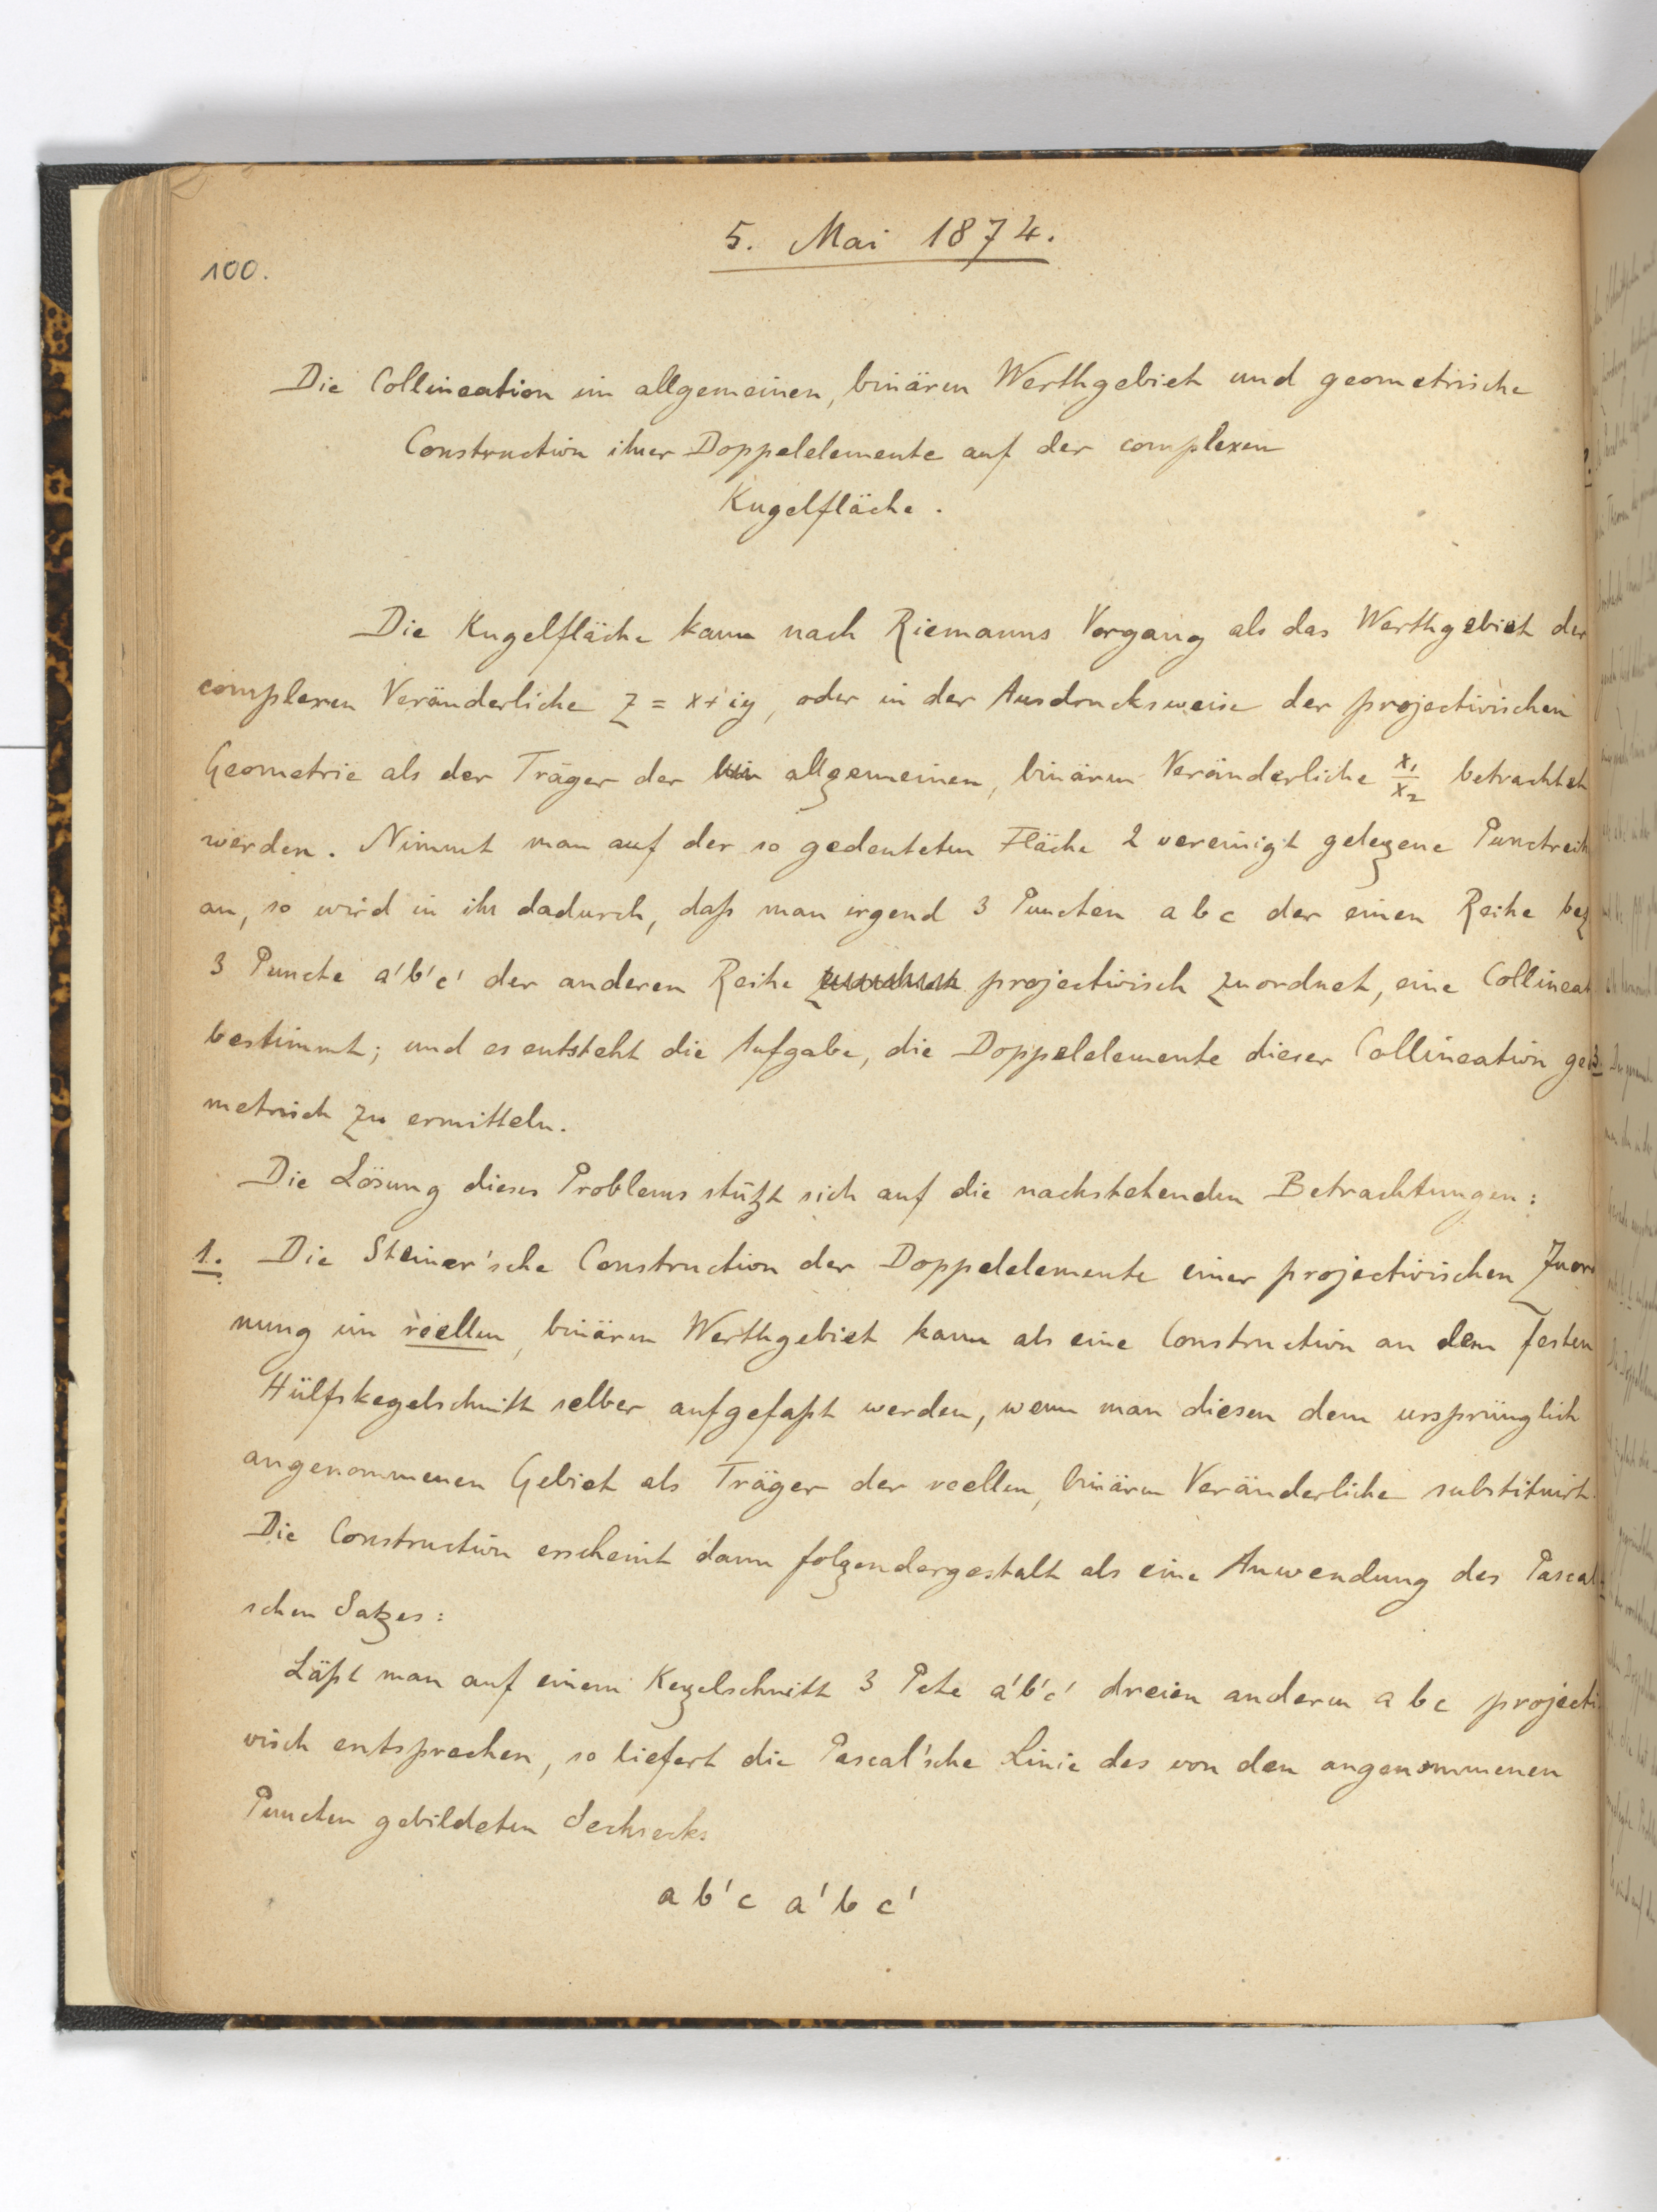 5. Mai 1874.
100.
Die Collineation im allgemeinen, binären Werthgebiet und geometrische
Construction ihrer Doppelelemente auf der complexen
Kugelfläche.
Die Kugelfläche kann nach Riemanns Vorgang als das Werthgebiet der
complexen Veränderliche z = x + iy, oder in der Ausdrucksweise der projectivischen
Geometrie als der Träger der allgemeinen, binären Veränderliche x₁/x₂ betrachtet
werden. Nimmt man auf der so gedeuteten Fläche 2 vereinigt gelegene Punctreih
an, so wird in ihr dadurch, daß man irgend 3 Puncten a b c der einen Reihe bez
3 Puncte a'b'c' der anderen Reihe projectivisch zuordnet, eine Collineat
bestimmt; und es entsteht die Aufgabe, die Doppelelemente dieser Collineation geo
metrisch zu ermitteln.
Die Lösung dieses Problems stützt sich auf die nachstehenden Betrachtungen:
1. Die Steiner'sche Construction der Doppelelemente einer projectivischen Zuord
nung im reellen, binären Werthgebiet kann als eine Construction an dem festen
Hülfskegelschnitt selber aufgefaßt werden, wenn man diesen dem ursprünglich
angenommenen Gebiet als Träger der reellen, binären Veränderliche substituirt.
Die Construction erscheint dann folgendergestalt als eine Anwendung des Pascal
schen Satzes:
Läßt man auf einem Kegelschnitt 3 Pcte a'b'c' dreien anderen a b c projecti
visch entsprechen, so liefert die Pascal'sche Linie des von den angenommenen
Puncten gebildeten Sechsecks
a b' c a' b c'